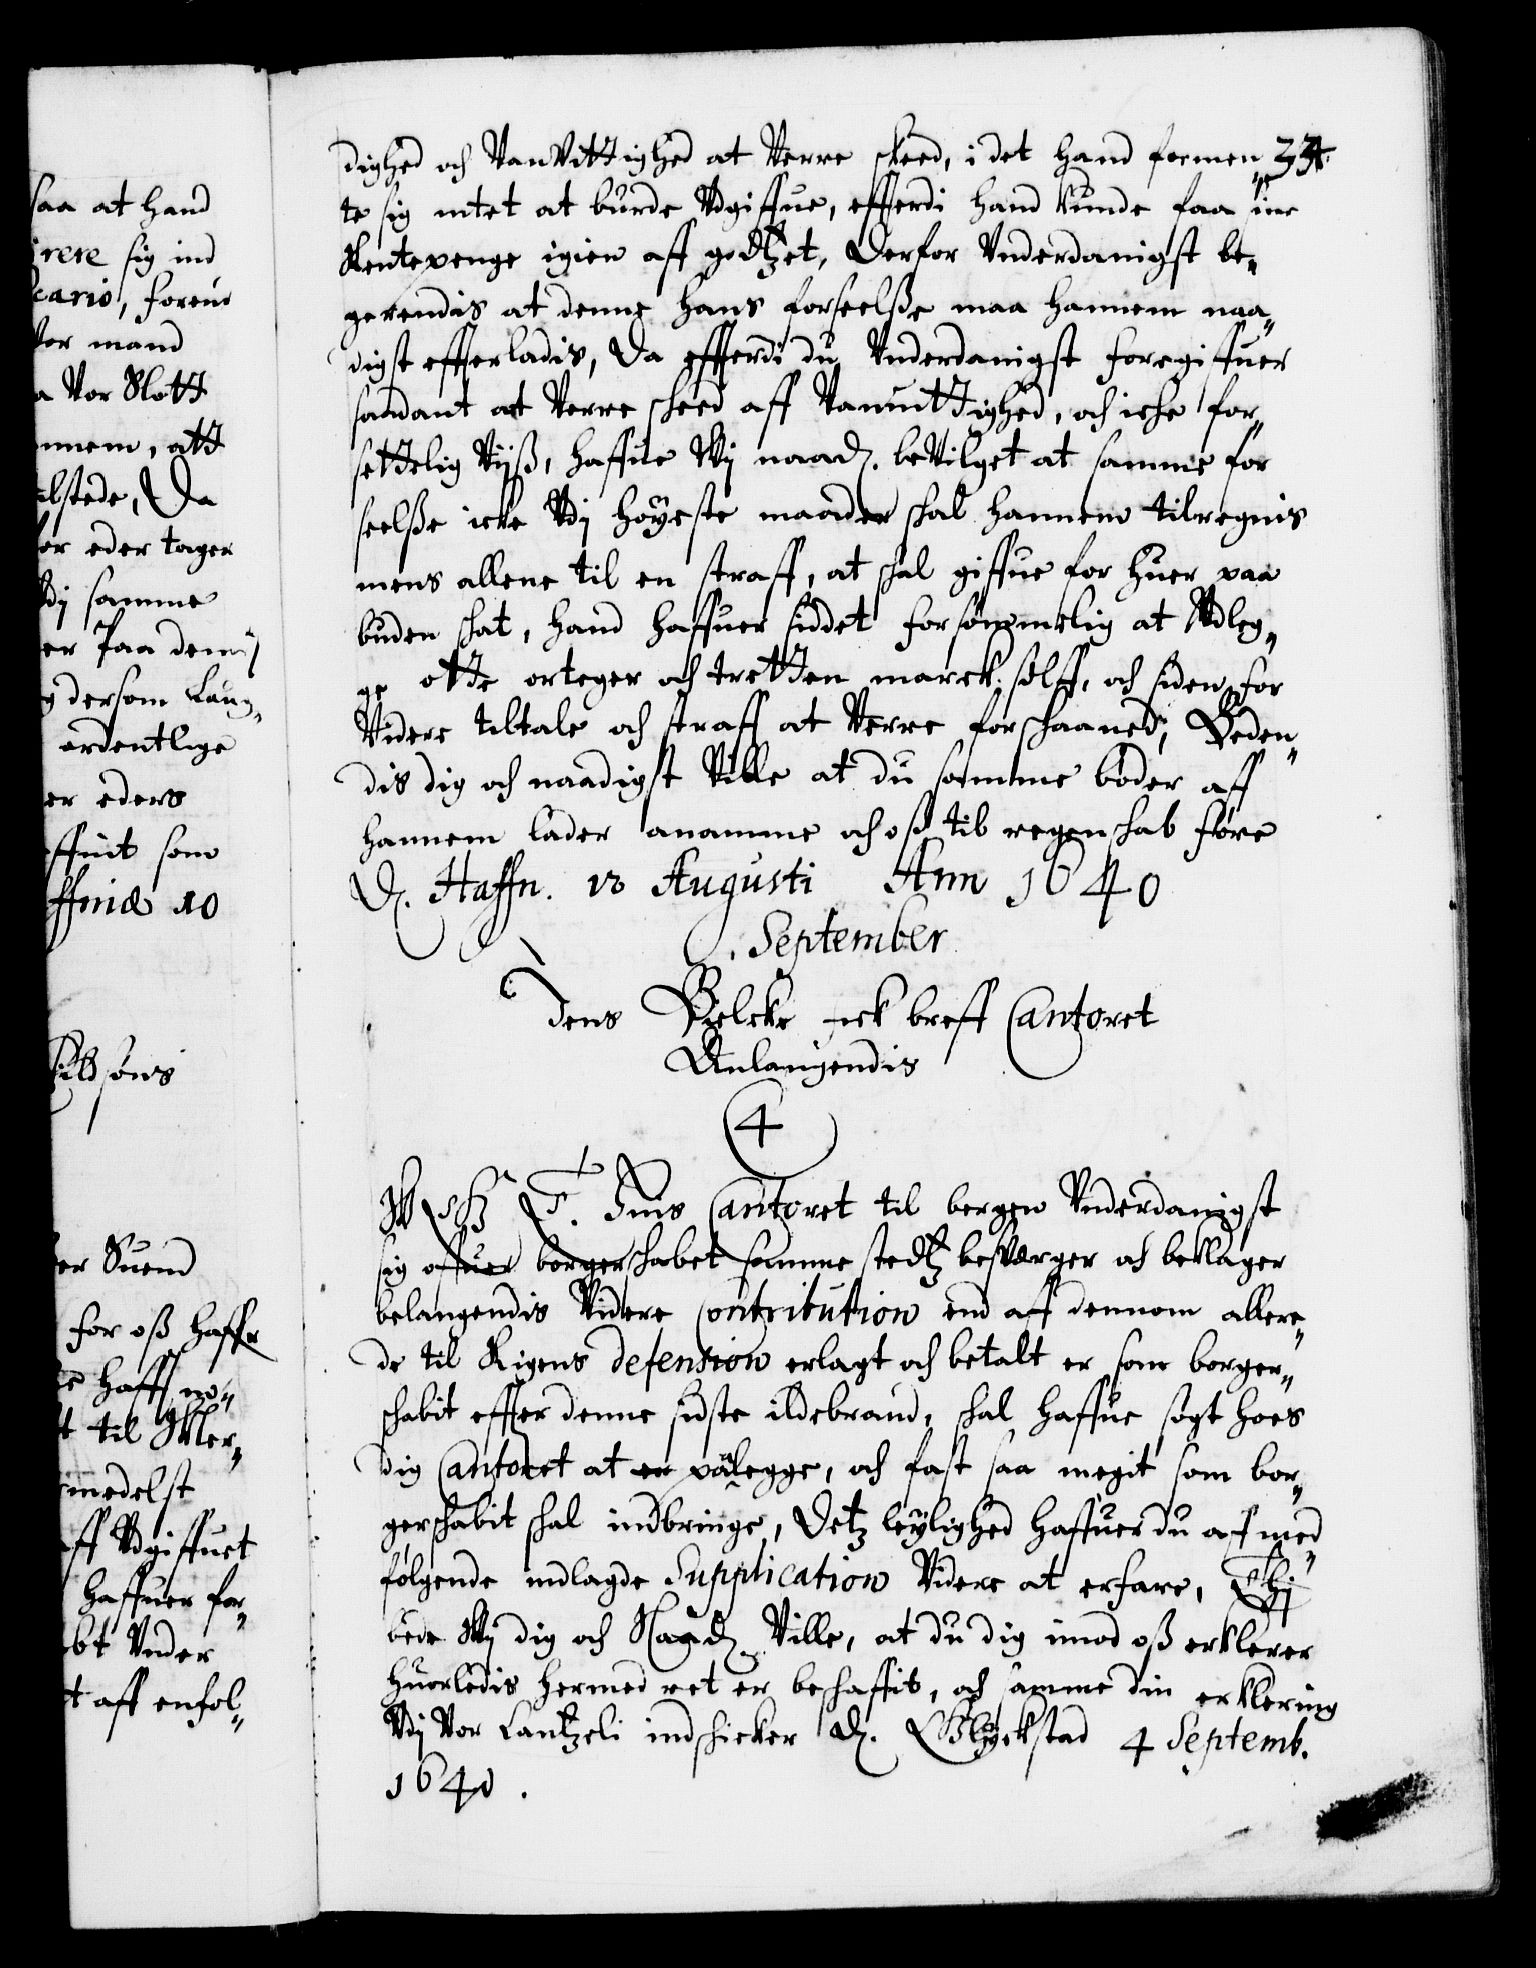 saa at hand
rere sig ind
cario, foruid
for mand
a Vor Slott
nnem, att
lstede, Da
or eder tager
dj samme
er Paa dem
g dersom Laug„
ordentlige
er eders
ffuit som
ffniæ 10
ildsøns
er Suend
for oß haffr
e haffr nø„
t til Kler„
imedelst
ff Vdgiffuet
haffuer for„
bt Vnder
t aff enfol„
34.
dighed och VanVittighed at Verre skeed, i det hand formen„
te sig intet at burde Vdgiffue, effterdi hand kunde faa sine
Rentepenge igien aff godtzet, Derfor Vnderdanigst be„
gerendis at denne hans forseelße maa hannem naa„
digst effterladis, Da effterdi du Vnderdanigst foregiffuer
saadant at Verre skeed aff Vanuittighed, och iche for„
settelig Vijß, haffue Wj naad. beVilget at samme for
seelße icke Vdj høyeste maader skal hannem tilregnis
mens allene til en straff, at skal giffue for huer paa
buden skat, hand haffuer siddet forsømmelig at Vdleg„
ge otte orteger och tretten marck sølff, och siden for
Videre tiltale och straff at Verre forskaaned, Beden„
dis dig och naadigst Ville at du samme bøder aff
hannem lader anamme och oß til regenskab føre
D. Haffn. 13 Augusti Ann 1640
September
Jens Bielcke fick breff Cantoret
Anlangendis
4
C4 G. T. Euis Cantoret til bergen Vnderdanigst
sig offuer borgerskabet samme stedtz besværger och beklager
belangendis Videre Contribution end aff dennom allere„
de til Rigens defension erlagt och betalt er som borger„
skabit effter denne sidste ildebrand, skal haffue søgt hoes
dig Cantoret at pålegge, och fast saa megit som bor„
gerskabit skal indbringe, Detz leylighed haffuer du aff med„
følgende indlagde Supplication Videre at erfare, Thj
bede Wj dig och Naad. Ville, at du dig imod oß erklerer
huorledis hermed ret er beskaffit, och samme din erklering
Vdj Vor Cantzeli indskicker D. Glyckstad 4 Septemb.
1640.